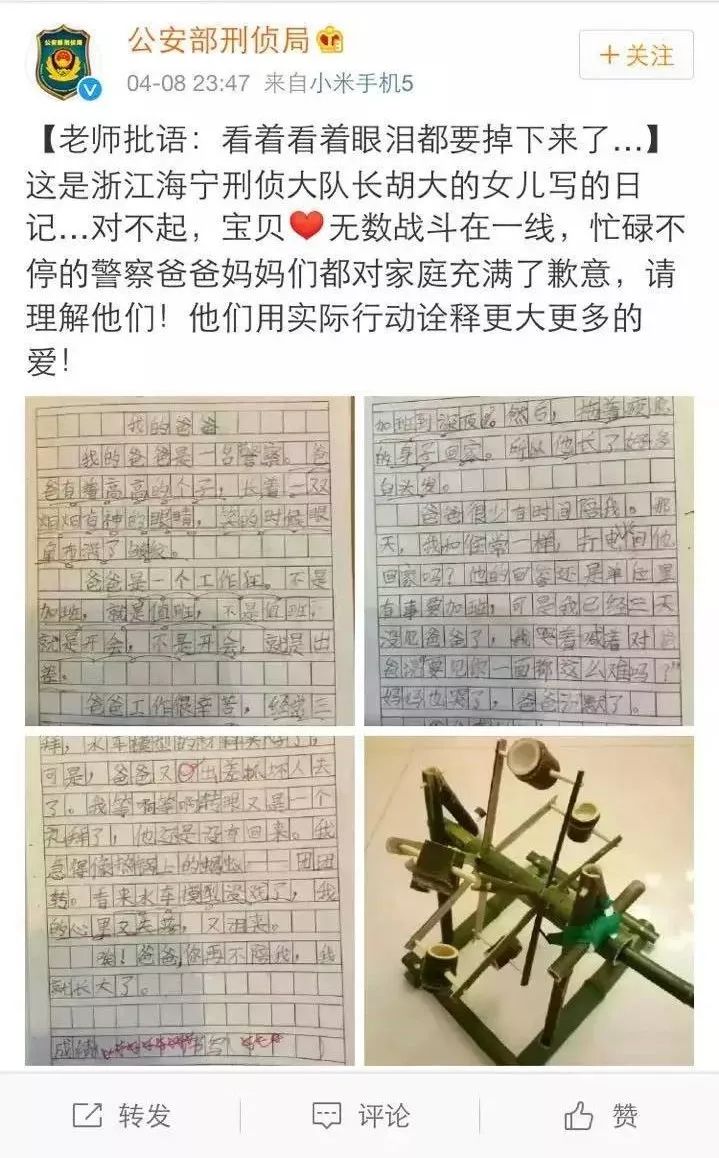 公安部刑侦局
+关注
04-08 23:47 来自小米手机5
【老师批语：看着看着眼泪都要掉下来了...】
这是浙江海宁刑侦大队长胡大的女儿写的日
记...对不起，宝贝❤无数战斗在一线，忙碌不
停的警察爸爸妈妈们都对家庭充满了歉意，请
理解他们！他们用实际行动诠释更大更多的
爱！
我的爸爸
我的爸爸是一名警察。爸
爸有着高高的个子，长着一双
炯炯有神的眼睛，笑的时候眼
角布满了皱纹。
爸爸是一个工作狂。不是
加班，就是值班，不是值班，
就是开会，不是开会，就是出
差。
爸爸工作很辛苦，经常三
加班到深夜。然后，拖着疲惫
的身子回家。所以他长了好多
白头发。
爸爸很少有时间陪我。那
天，我如往常一样，打电问他
回家吗？他的回答还是单位里
有事要加班，可是我已经三天
没见爸爸了，我哭着喊着对爸
爸说要见你一面都这么难吗？"
妈妈也哭了，爸爸沉默了。
拜，水车模型的材料买好了，
可是，爸爸又出差抓坏人去
了。我等啊等啊转眼又是一个
礼拜了，他还是没有回来。我
急得像热锅上的蚂蚁——团团
转。看来水车模型没戏了，我
的心里又失落，又沮丧。
唉！爸爸你再不陪我，我
就长大了。
成绩
转发
评论
赞